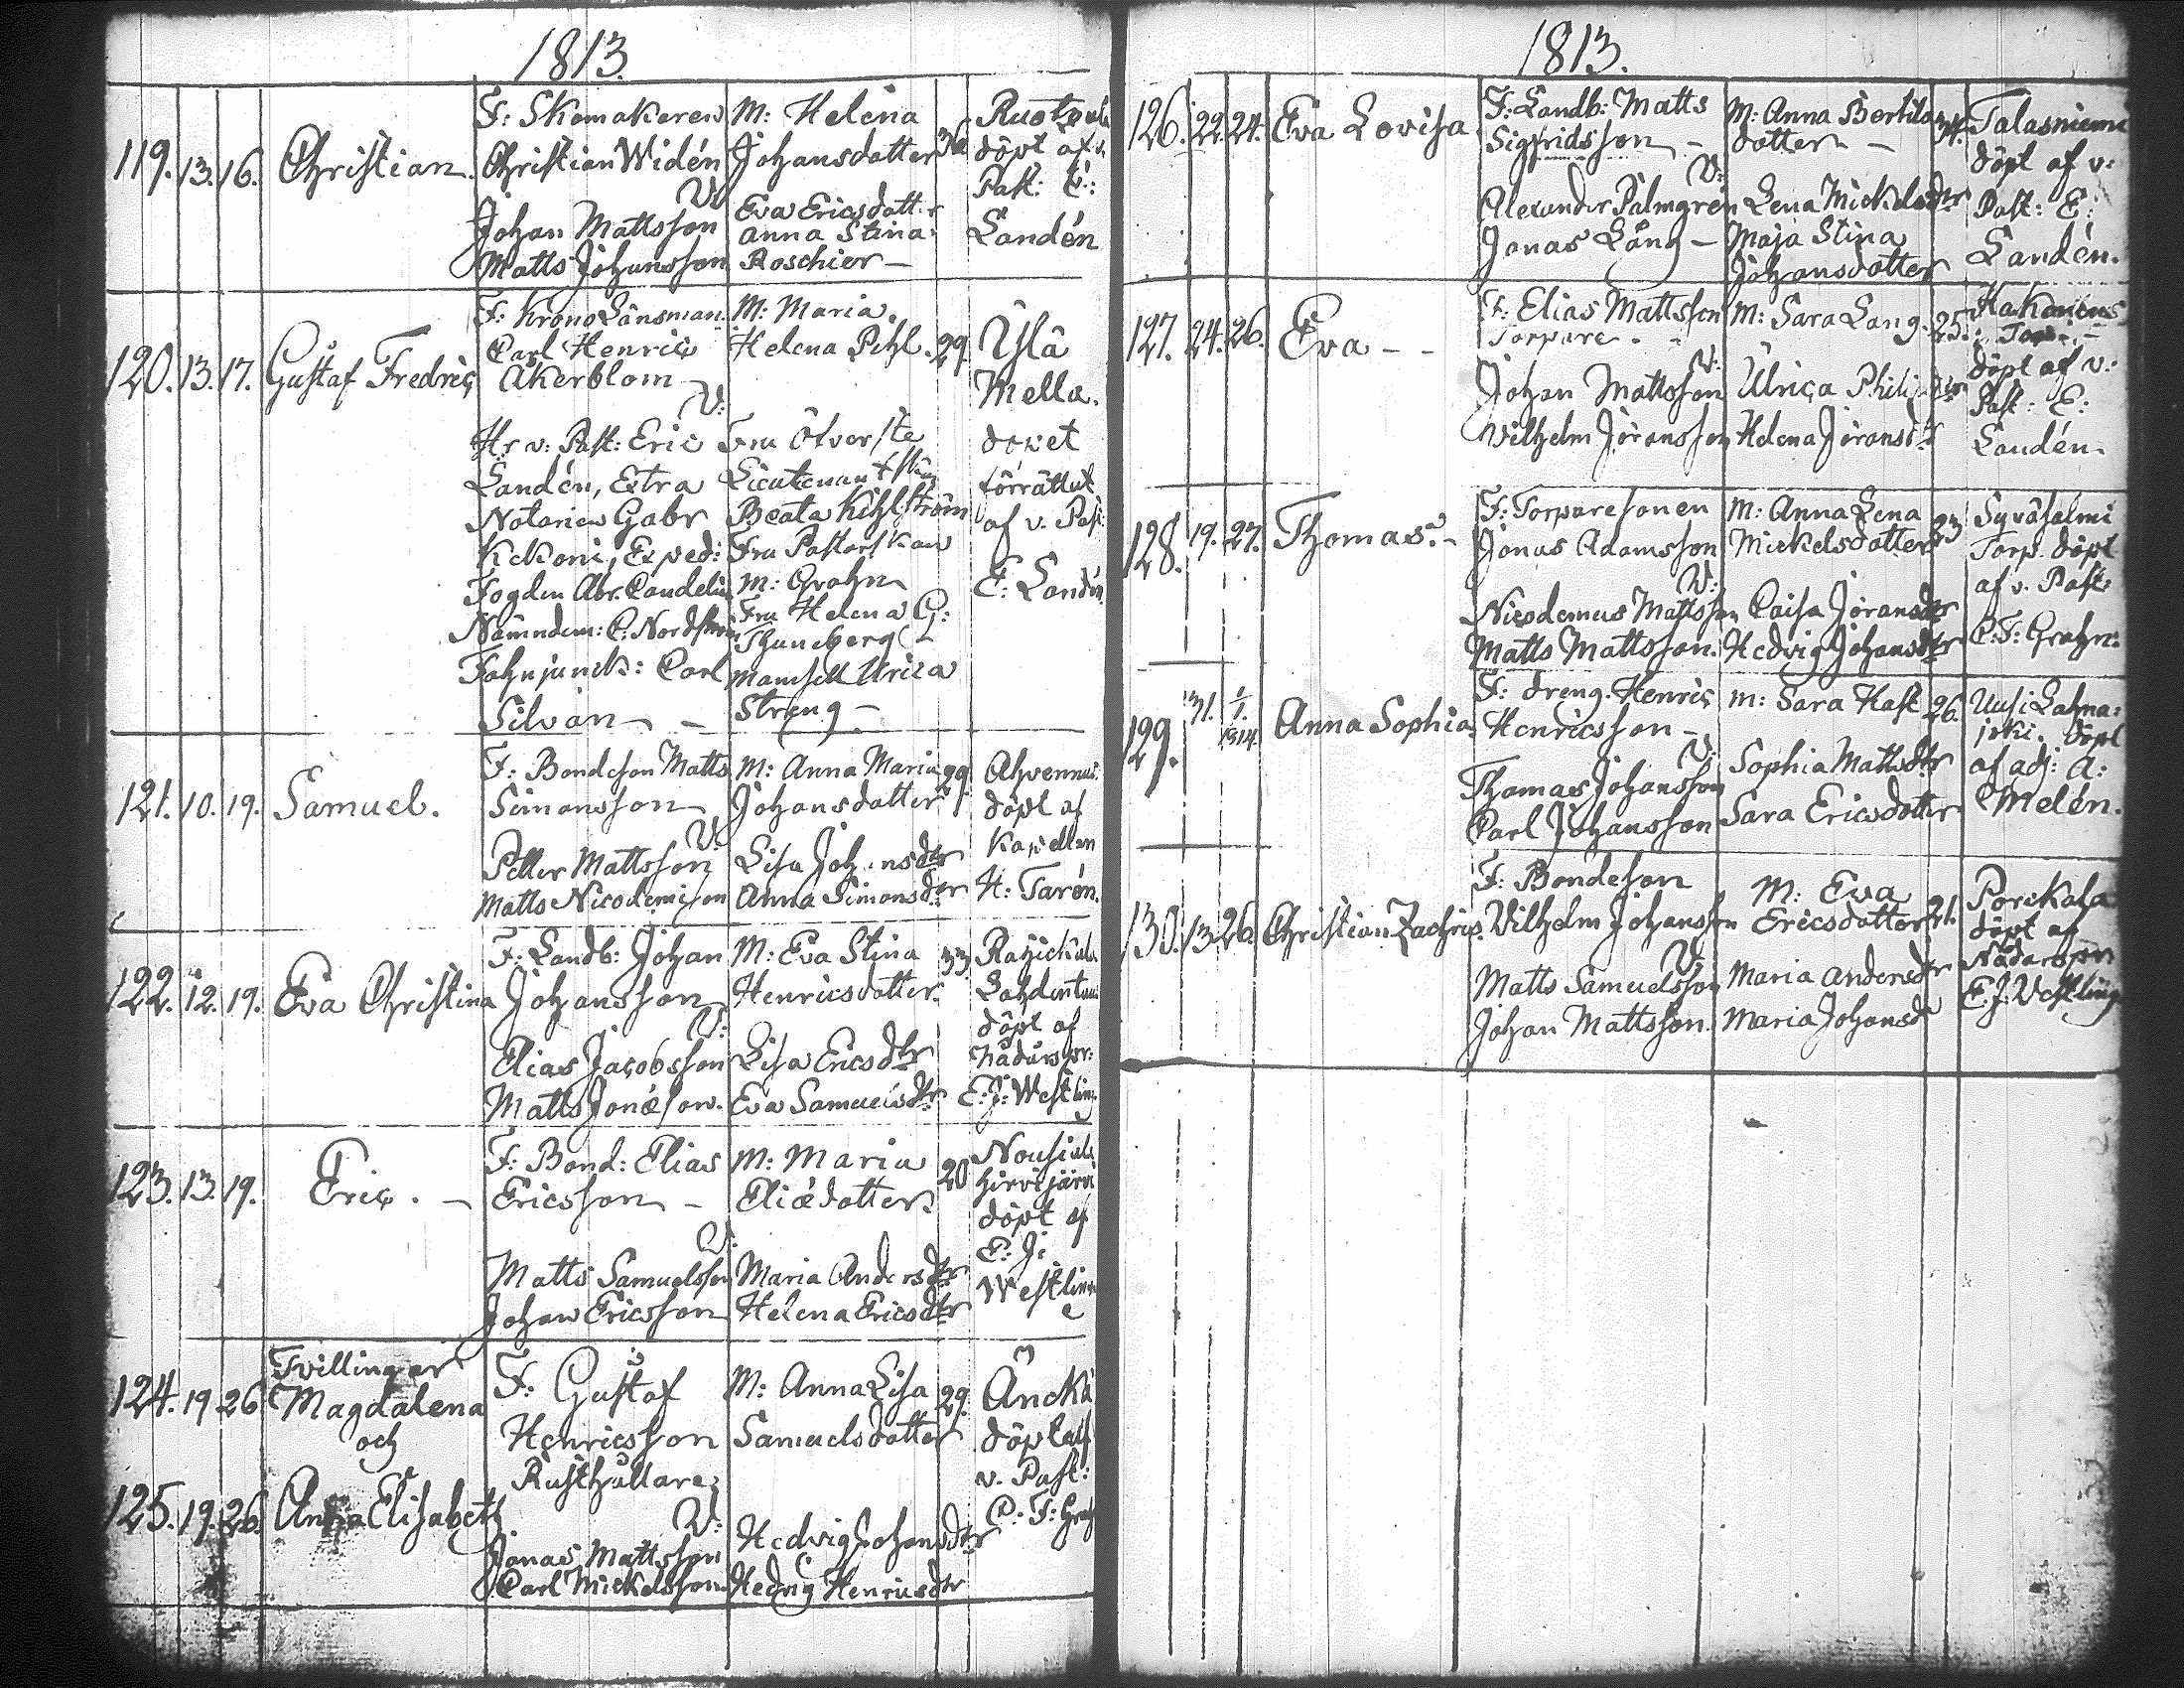 1813.
119. 13. 16. Christian.
F: Skomakeren
Christian Widén
V:
Johan Mattsson
Matts Johansson
M: Helena
Johansdotter
Eva Ericsdotter
Anna Stina
Roschier —
döpt af v.
Past: E:
Landén
120. 13. 17. Gustaf Fredric
F: Krono Länsman
Carl Henric
Åkerblom
V:
Hr v: Past: Eric
Landén, Extra
Notarien Gabr
Kekoni, Exped:
Fogden Abr. Candelin
Nämndem: C. Nordström
Fahnjunck: Carl
Silvan —
M: Maria
Helena Pihl. 29.
Fru Öfverste
Lieutenantskan
Beata Kihlström
Fru Pastorskan
M: Grahn
Fru Helena G:
Thuneberg
Mamsell Ulrica
Streng —
Ylä
Mella.
dopet
förrättat
af v. Past:
E: Landén
121. 10. 19. Samuel.
F: Bondeson Matts
Simonsson
V:
Petter Mattsson
Matts Nicodemison
M: Anna Maria 29
Johansdotter
Lisa Johansdtr
Anna Simonsdtr
Ahvennus.
döpt af
Kapellan
H: Tarén.
122. 12. 19. Eva Christina
F: Landb: Johan
Johansson
V:
Elias Jacobsson
Matts Jonæson.
M: Eva Stina 33
Henricsdotter.
Lisa Ericsdtr
Eva Samuelsdtr
döpt af
Nådårspr:
E: J: Westling
123. 13. 19. Eric. —
F: Bond: Elias
Ericsson —
V:
Matts Samuelsson
Johan Ericsson
M: Maria 20
Eliædotter.
Maria Andersdtr
Helena Ericsdtr
Hirvijärvi
döpt af
E: J:
Westling
Tvillingar
124. 19 26 Magdalena
och
125. 19. 26. Anna Elisabeth
F: Gustaf
Henricsson
Rusthållare
V:
Jonas Mattsson
Carl Mickelsson
M: Anna Lisa 29.
Samuelsdotter
Hedvig Johansdtr
Hedvig Henricsdtr
Änckä
döpt af
v. Past:
C: F: Grah
1813.
126. 22. 24. Eva Lovisa
F: Landb: Matts
Sigfridsson —
V:
Alexander Palmgren
Jonas Lång —
M: Anna Bertils
dotter —
Lena Mickelsdtr
Maja Stina
Johansdotter
Talasniemi
döpt af v:
Past: E:
Landén.
127. 24. 26. Eva — —
F: Elias Mattsson
Torpare.
V:
Johan Mattsson
Vilhelm Jöransson
M: Sara Lang. 25.
Ulrica
Helena Jöransdr
döpt af v:
Past: E:
Landén.
128. 19. 27. Thomas. —
F: Torparesonen
Jonas Adamsson
V:
Nicodemus Mattsson
Matts Mattsson.
M: Anna Lena 23
Mickelsdotter
Caisa Jöransdtr
Hedvig Johansdtr
Syväsalmi
Torp. döpt
af v. Past:
C: F: Grahn.
129. 31. 1/1. 1814. Anna Sophia
F: dreng. Henric
Henricsson —
V:
Thomas Johansson
Carl Johansson
M: Sara Hast 26.
Sophia Mattsdtr
Sara Ericsdotter
Uusi Lahna:
joki. döpt
af adj: A:
Melén.
130. 13. 26. Christian Zachris.
F: Bondeson
Vilhelm Johansson
V:
Matts Samuelsson
Johan Mattsson.
M: Eva
Ericsdotter 21.
Maria Andersdtr
Maria Johansdr
Porckala
döpt af
Nådårspr
E. J: Vestling